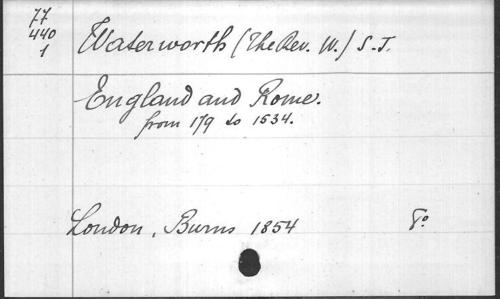 77
440
1
Waterworth (The Rev. W.) S.J.
England and Rome.
from 179 to 1534.
London, Burns 1854
8º